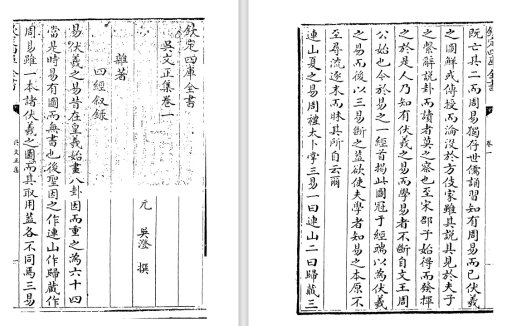 欽定四庫全書
吳文正集卷一
元 吳澄 撰
雜著
四經叙録
易伏羲之易昔在皇羲始畫八卦因而重之為六十四
當是時易有圖而無書也後聖因之作連山作歸藏作
周易雖一本諸伏羲之圖而其取用蓋各不同焉三易
吳文正集
欽定四庫全書
卷一
既亡其二而周易獨存世儒誦習知有周易而已伏羲
之圖鮮或傳授而淪沒於方伎家雖其說具見於夫子
之繫辭說卦而讀者莫之察也至宋邵子始得而發揮
之於是人乃知有伏羲之易而學易者不斷自文王周
公始也今於易之一經首揭此圖冠于經端以為伏羲
之易而後以三易斷之蓋欲使夫學者知易之本原不
至尋流逐末而昧其所自云爾
連山夏之易周禮太卜掌三易一曰連山二曰歸藏三